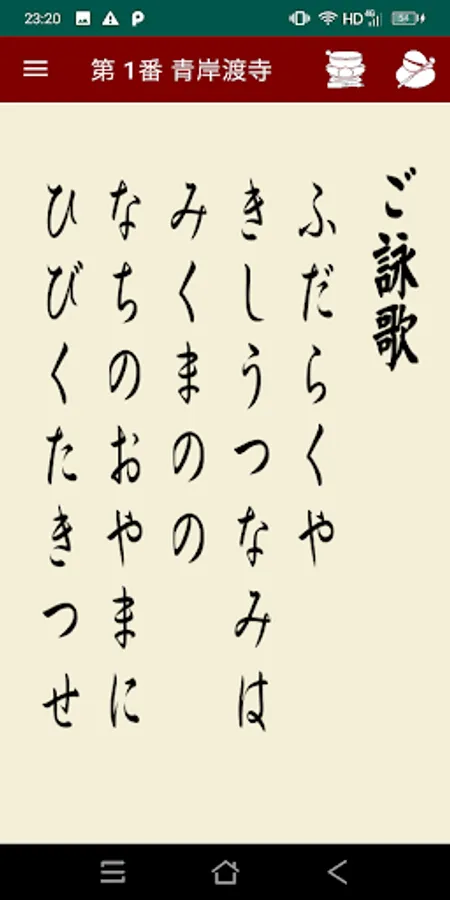 23:20
HD 4G
54
第 1番 青岸渡寺
ご詠歌
ふだらくや
きしうつなみは
みくまのの
なちのおやまに
ひびくたきつせ